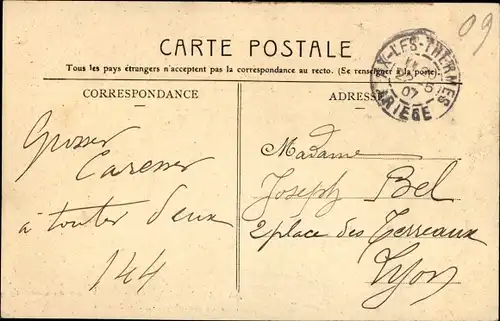 09
CARTE POSTALE
Tous les pays étrangers n'acceptent pas la correspondance au recto. (Se renseigner à la poste)
CORRESPONDANCE
ADRESSE
AX-LES-THERMES
ARIEGE
07
Grosses
Caresses
à toutes deux
144
Madame
Joseph Bel
2 place des Terreaux
Lyon